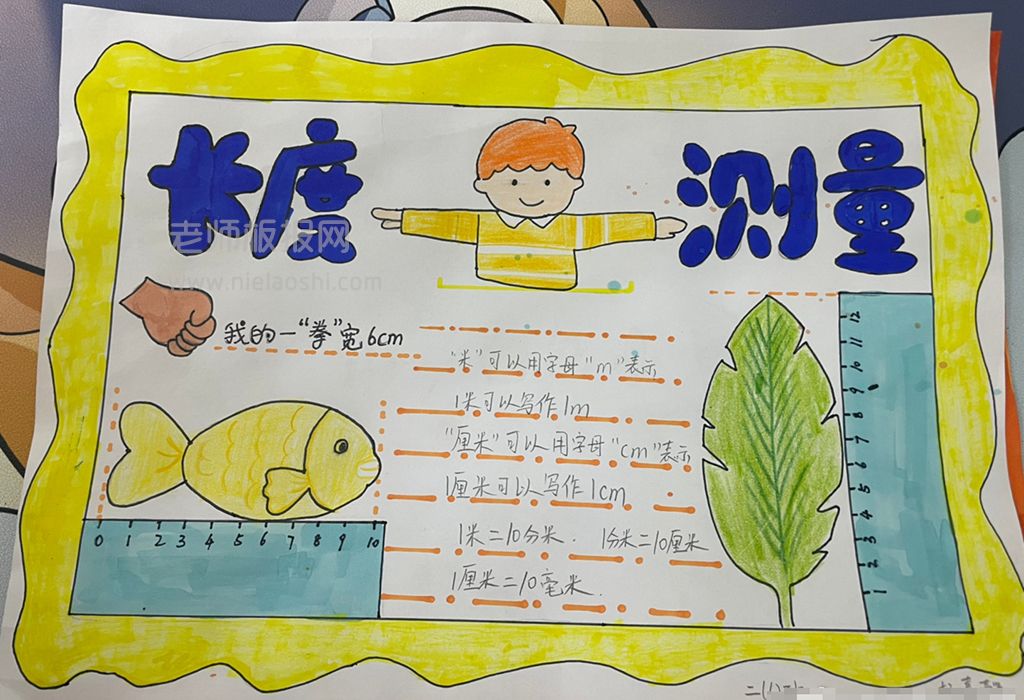 长度 测量
老师板报网
www.nielaoshi.com
我的一“拳”宽6cm
“米”可以用字母“m”表示
1米可以写作1m
“厘米”可以用字母“cm”表示
1厘米可以写作1cm
1米=10分米. 1分米=10厘米
1厘米=10毫米.
0 1 2 3 4 5 6 7 8 9 10
12
11
10
9
8
7
6
5
4
3
2
1